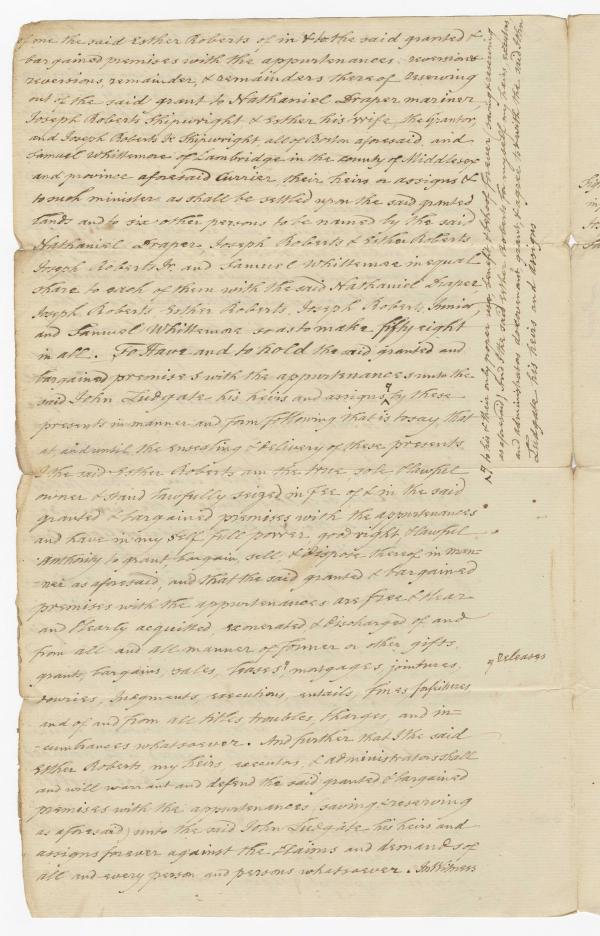 of me the said Esther Roberts of in & to the said granted &
bargained premises with the appurtenances reversion &
reversions, remainder, & remainders thereof reserving
out of the said grant to Nathaniel Draper mariner,
Joseph Roberts Shipwright & Esther his Wife, the Grantor,
and Joseph Roberts Jr Shipwright, all of Boston aforesaid, and
Samuel Whittemore of Cambridge in the county of Middlesex
and province aforesaid Currier their heirs or assigns &
to such minister as shall be settled upon the said granted
land and to six other persons to be named by the said
Nathaniel Draper, Joseph Roberts & Esther Roberts
Joseph Roberts Jr. and Samuel Whittemore in equal
share to each of them with the said Nathaniel Draper,
Joseph Roberts, Esther Roberts, Joseph Roberts, Junior,
and Samuel Whittemore so as to make fifty eight
in all. To Have and to hold the said granted and
bargained premises with the appurtenances unto the
said John Ludgate his heirs and assigns ^ by these
presents in manner and form following that is to say that
at and until the ensealing & delivery of these presents
I the said Esther Roberts am the true sole & lawful
owner & stand lawfully seized in fee of & in the said
granted & bargained premises with the appurtenances
and have in my self full power good right, & lawful
Authority to grant, bargain, sell, & dispose thereof in man=
=ner as aforesaid, and that the said granted & bargained
premises with the appurtenances are free & clear
and clearly acquitted, exonerated & discharged of and
from all and all manner of former or other gifts,
grants, bargains, sales, leases, mortgages, jointures,
dowries, Judgments, executions, entails, fines forfeitures
and of and from all titles troubles, charges, and in=
=cumbrances whatsoever. And further that I the said
Esther Roberts, my heirs, executors, & administrators shall
and will warrant and defend the said granted & bargained
premises with the appurtenances, saving & reserving
as aforesaid) unto the said John Ludgate his heirs and
assigns forever against the claims and demands of
all and every person and persons whatsoever. In Witness
releases
to his & their only proper use, benefit & behoof forever, saving & reserving
as aforesaid) And I the said Esther Roberts for myself, my heirs, executors
and administrators do covenant, grant, & agree to & with the said John
Ludgate his heirs and assigns